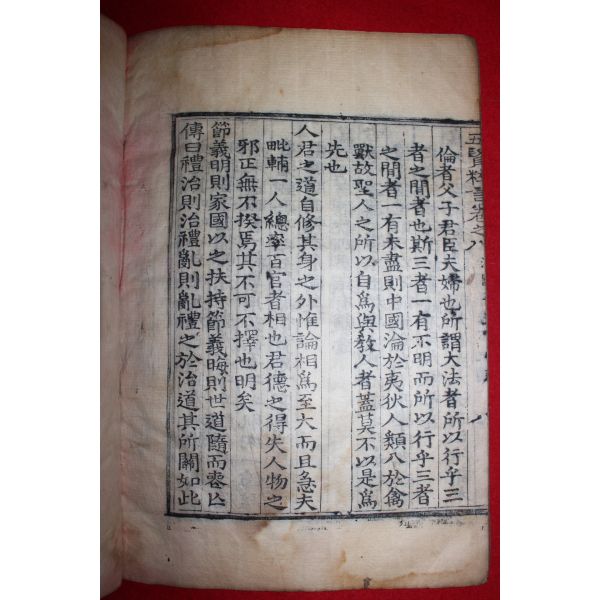 五賢粹言卷之八
倫者父子君臣夫婦也所謂大法者所以行乎三
者之間者也斯三者一有不明而所以行乎三者
之間者一有未盡則中國淪於夷狄人類入於禽
獸故聖人之所以自爲與敎人者蓋莫不以是爲
先也
人君之道自修其身之外惟論相爲至大而且急夫
毗輔一人緫率百官者相也君德之得失人物之
邪正無不揆焉其不可不擇也明矣
節義明則家國以之扶持節義晦則世道隨而喪亡
傳曰禮治則治禮亂則亂禮之於治道其所關如此